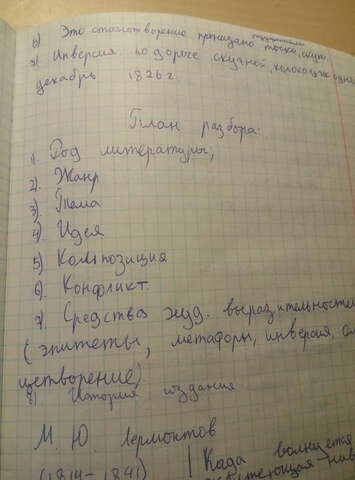 6) Это стихотворение пронизано тоски, скуки
7) Инверсия по дороге скучной, колокольчик одно
декабрь 1826 г.
План разбора:
1. Род литературы,
2). Жанр
3). Тема
4). Идея
5) Композиция
6). Конфликт
7). Средства худ. выразительности
(эпитеты, метафоры, инверсия, ол
цетворение)
8) История издания
М. Ю. Лермонтов
(1814-1841) Када волнуется